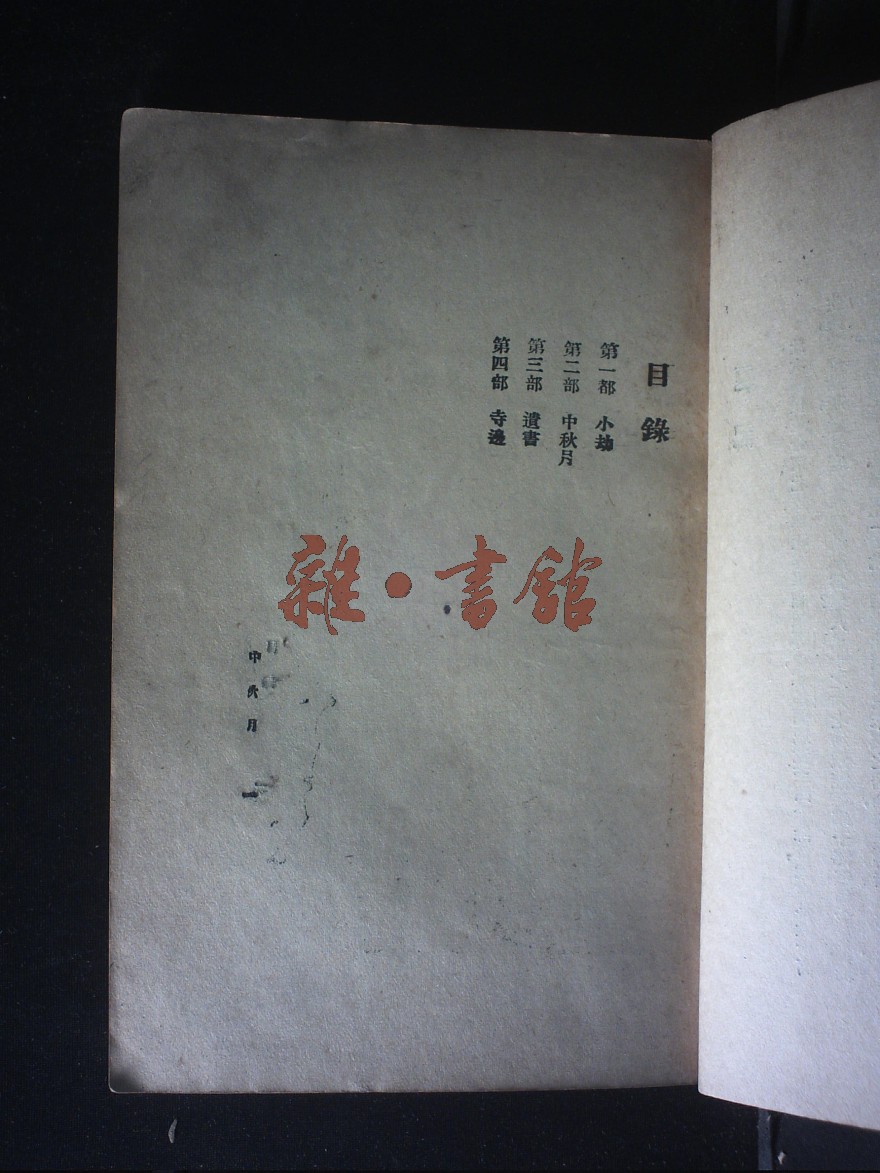 目錄
第一都 小劫
第二部 中秋月
第三部 遺書
第四部 寺邊
雜·書館
中秋月 一